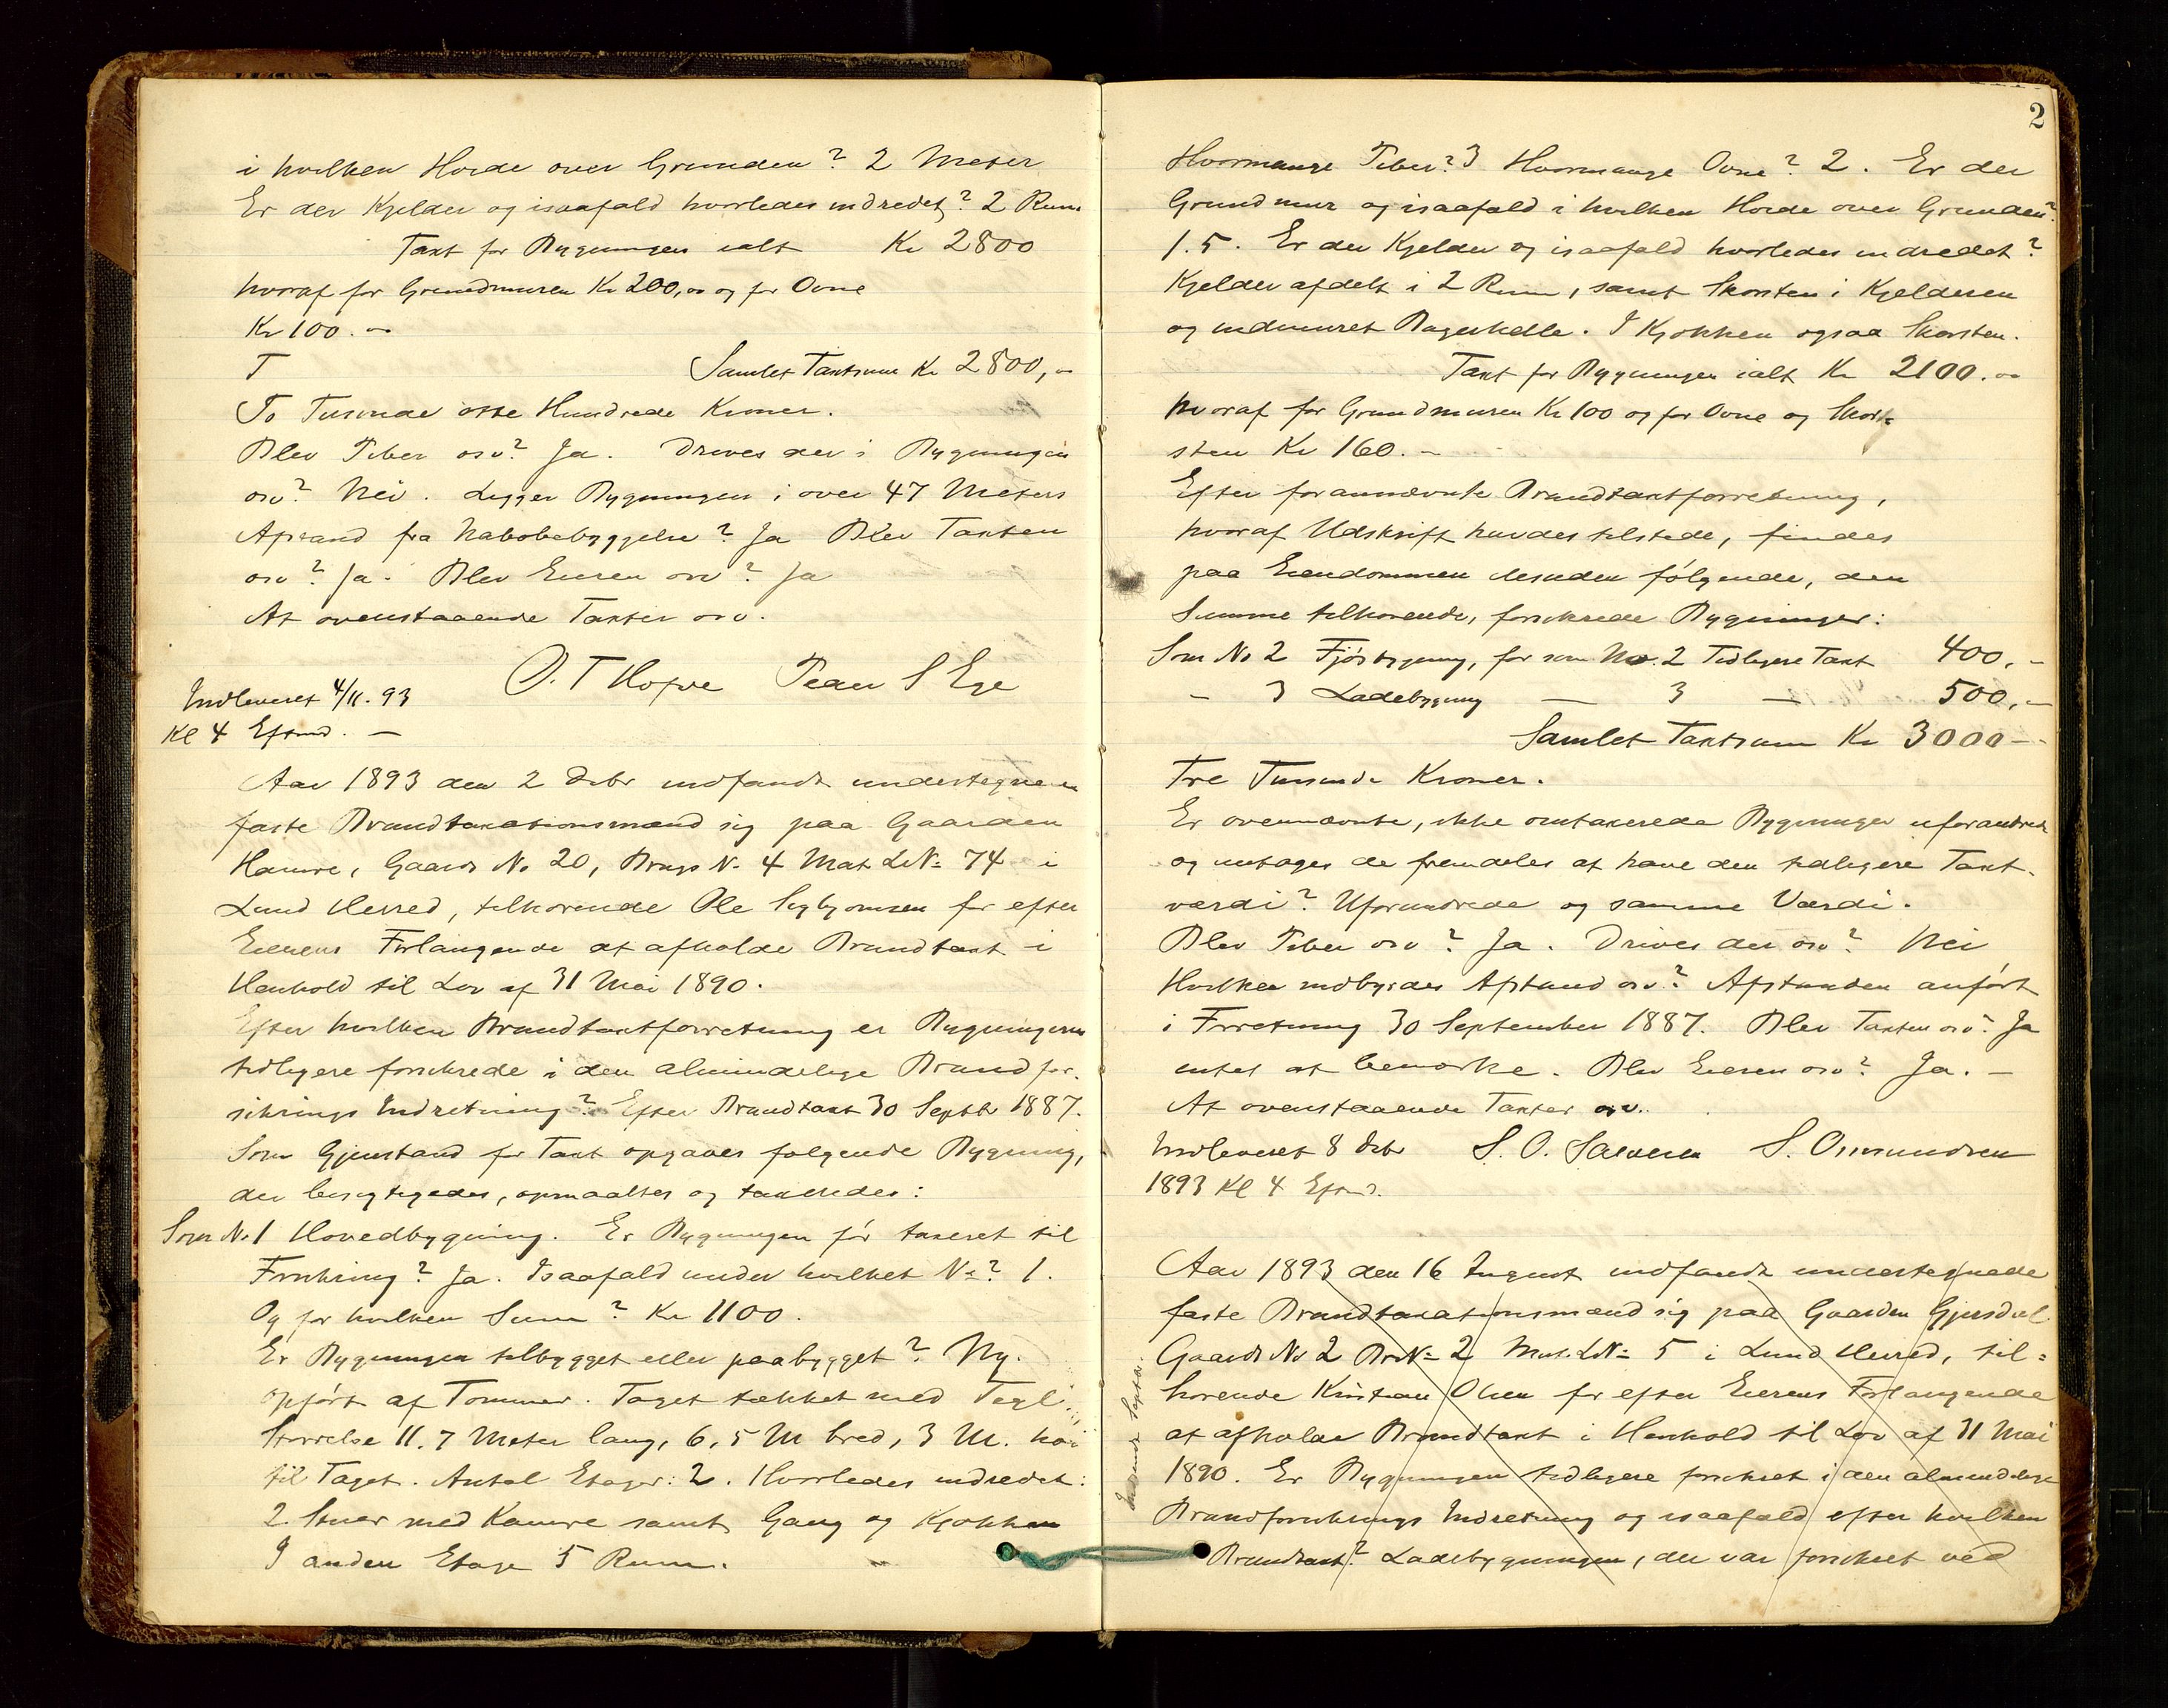 i hvilken Høide over Grunden? 2 Meter
Er der Kjelder og isaafald hvorledes indredet? 2 Rum
Taxt for Bygningen ialt Kr 2800
hvoraf for Grundmuren Kr 200,00 og for Ovne
Kr 100.-
T Samlet Taxtsum Kr 2800,-
To Tusinde otte Hundrede Kroner.
Blev Piber osv? Ja. Drives der i Bygningen
osv? Nei. Ligger Bygningen i over 47 Meters
Afstand fra Nabobebyggelse? Ja Blev Taxten
osv? Ja. Blev Eieren osv? Ja
At ovenstaaende Taxter osv.
O. T Hofve Peder S Ege
Indleveret 4/11.93
Kl 4 Eftmd. -
Aar 1893 den 2 Debr indfandt undertegnede
faste Brandtaxationsmænd sig paa Gaarden
Hamre, Gaards No 20, Brugs N. 4 Mat. LN= 74 i
Lund Herred, tilhørende Ole Sigbjørnsen for efter
Eierens Forlangende at afholde Brandtaxt i
Henhold til Lov af 31 Mai 1890.
Efter hvilken Brandtaxtforretning er Bygningerne
tidligere forsikrede i den almindelige Brandfor-
sikrings Indretning? Efter Brandtaxt 30 Septbr 1887.
Som Gjenstand for Taxt opgaves følgende Bygning,
der besigtigedes, opmaaltes og taxeredes:
Som No 1 Hovedbygning. Er Bygningen før taxeret til
Forsikring? Ja. Isaafald under hvilket N=? 1.
Og for hvilken Sum? Kr 1100.
Er Bygningen tilbygget eller paabygget? Ny.
opført af Tømmer. Taget tækket med Tegl.
Størrelse 11.7 Meter lang, 6,5 M bred, 3 M. høi
til Taget. Antal Etager: 2. Hvorledes indredet:
2 Stuer med Kamre samt Gang og Kjøkken
I anden Etage 5 Rum.
2
Hvormange Piber? 3 Hvormange Ovne? 2. Er der
Grundmur og isaafald i hvilken Høide over Grunden?
1.5. Er der Kjelder og isaafald hvorledes indredet?
Kjelder afdelt i 2 Rum, samt Skorsten i Kjelderen
og indmuret Bagerhelle. I Kjøkken ogsaa Skorsten.
Taxt for Bygningen ialt Kr 2100.00
hvoraf for Grundmuren Kr 100 og for Ovne og Skor-
sten Kr 160.-
Efter forannævnte Brandtaxtforretning,
hvoraf Udskrift havdes tilstede, findes
paa Eiendommen desuden følgende, den
Samme tilhørende, forsikrede Bygninger:
Som No 2 Fjøsbygning, før som No. 2 Tidligere Taxt 400,-
- 3 Ladebygning — 3 — 500,-
Samlet Taxtsum Kr 3000-
Tre Tusinde Kroner.
Er ovennævnte, ikke omtaxerede Bygninger uforandrede
og antages de fremdeles at have den tidligere Taxt-
værdi? Uforandrede og samme Værdi.
Blev Piber osv? Ja. Drives der osv? Nei
Hvilken indbyrdes Afstand osv? Afstanden anført
i Forretning 30 September 1887. Blev Taxten osv? Ja
intet at bemærke. Blev Eieren osv? Ja. -
At ovenstaaende Taxter osv.
Indleveret 8 Debr S. O. Salvesen S. Osmundsen
1893 Kl 4 Eftmd.
Aar 1893 den 16 August indfandt undertegnede
faste Brandtaxationsmænd sig paa Gaarden Gjersdal
Gaards No 2 Br.N= 2 Mat. LN= 5 i Lund Herred, til=
hørende Kristian Olsen for efter Eierens Forlangende
at afholde Brandtaxt i Henhold til Lov af 31 Mai
1890. Er Bygningen tidligere forsikret i den almindelige
Brandforsikrings Indretning og isaafald efter hvilken
Brandtaxt? Ladebygningen, der var forsikret ved